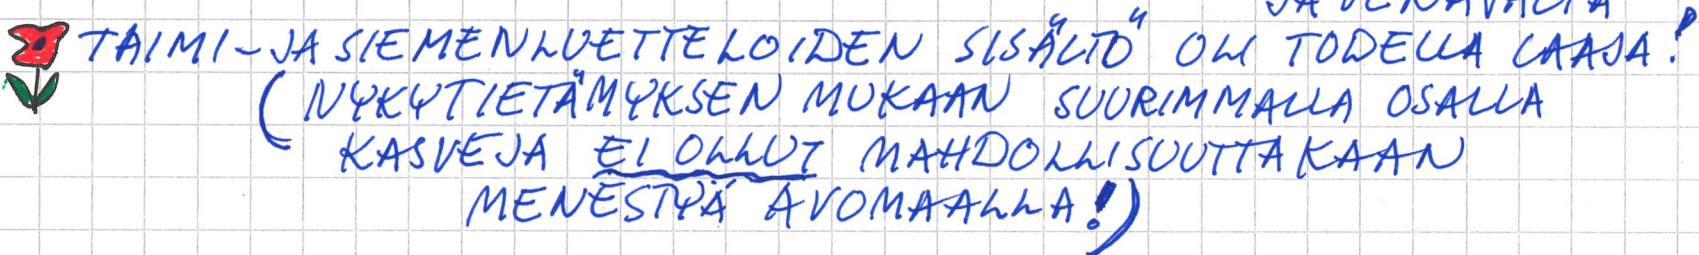 TAIMI-JA SIEMENLUETTELOIDEN SISÄLTÖ OLI TODELLA LAAJA!
(NYKYTIETÄMYKSEN MUKAAN SUURIMMALLA OSALLA
KASVEJA EI OLLUT MAHDOLLISUUTTAKAAN
MENESTYÄ AVOMAALLA!)